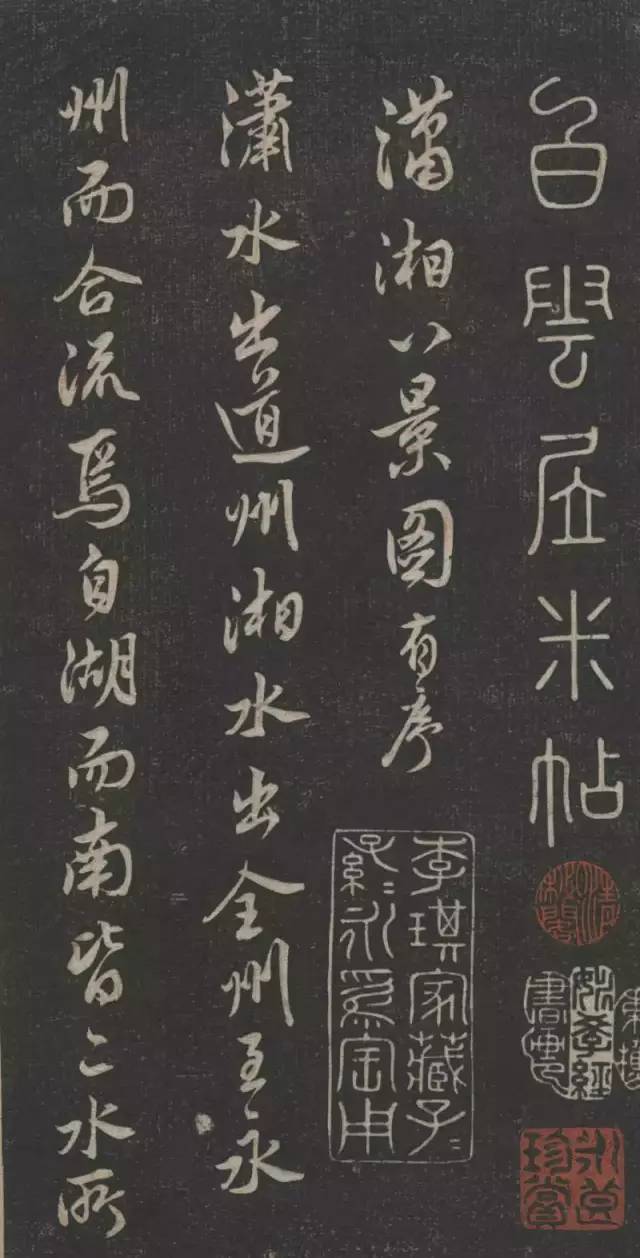 白雲居米帖
瀟湘八景圖有序
瀟水出道州湘水出全州至永
州而合流焉自湖而南皆二水所
李琪家藏子〻
孫〻永為寶用